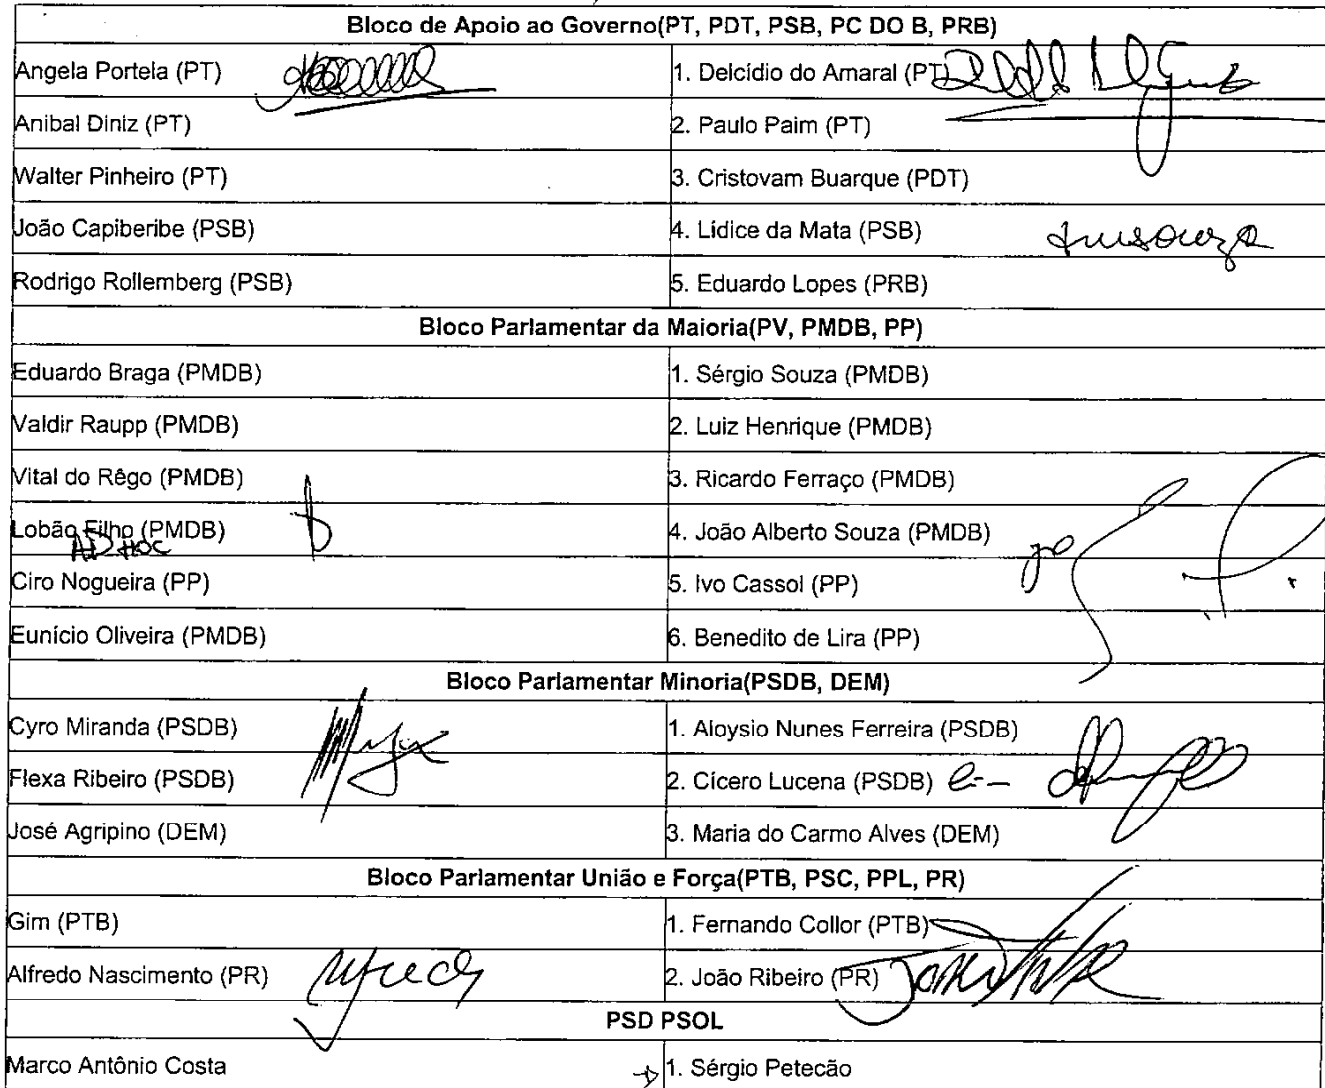 Bloco de Apoio ao Governo(PT, PDT, PSB, PC DO B, PRB)
Angela Portela (PT) 1. Delcídio do Amaral (PT)
Anibal Diniz (PT) 2. Paulo Paim (PT)
Walter Pinheiro (PT) 3. Cristovam Buarque (PDT)
João Capiberibe (PSB) 4. Lídice da Mata (PSB)
Rodrigo Rollemberg (PSB) 5. Eduardo Lopes (PRB)
Bloco Parlamentar da Maioria(PV, PMDB, PP)
Eduardo Braga (PMDB) 1. Sérgio Souza (PMDB)
Valdir Raupp (PMDB) 2. Luiz Henrique (PMDB)
Vital do Rêgo (PMDB) 3. Ricardo Ferraço (PMDB)
Lobão Filho (PMDB) 4. João Alberto Souza (PMDB)
AD HOC
Ciro Nogueira (PP) 5. Ivo Cassol (PP)
Eunício Oliveira (PMDB) 6. Benedito de Lira (PP)
Bloco Parlamentar Minoria(PSDB, DEM)
Cyro Miranda (PSDB) 1. Aloysio Nunes Ferreira (PSDB)
Flexa Ribeiro (PSDB) 2. Cícero Lucena (PSDB)
José Agripino (DEM) 3. Maria do Carmo Alves (DEM)
Bloco Parlamentar União e Força(PTB, PSC, PPL, PR)
Gim (PTB) 1. Fernando Collor (PTB)
Alfredo Nascimento (PR) 2. João Ribeiro (PR)
PSD PSOL
Marco Antônio Costa 1. Sérgio Petecão